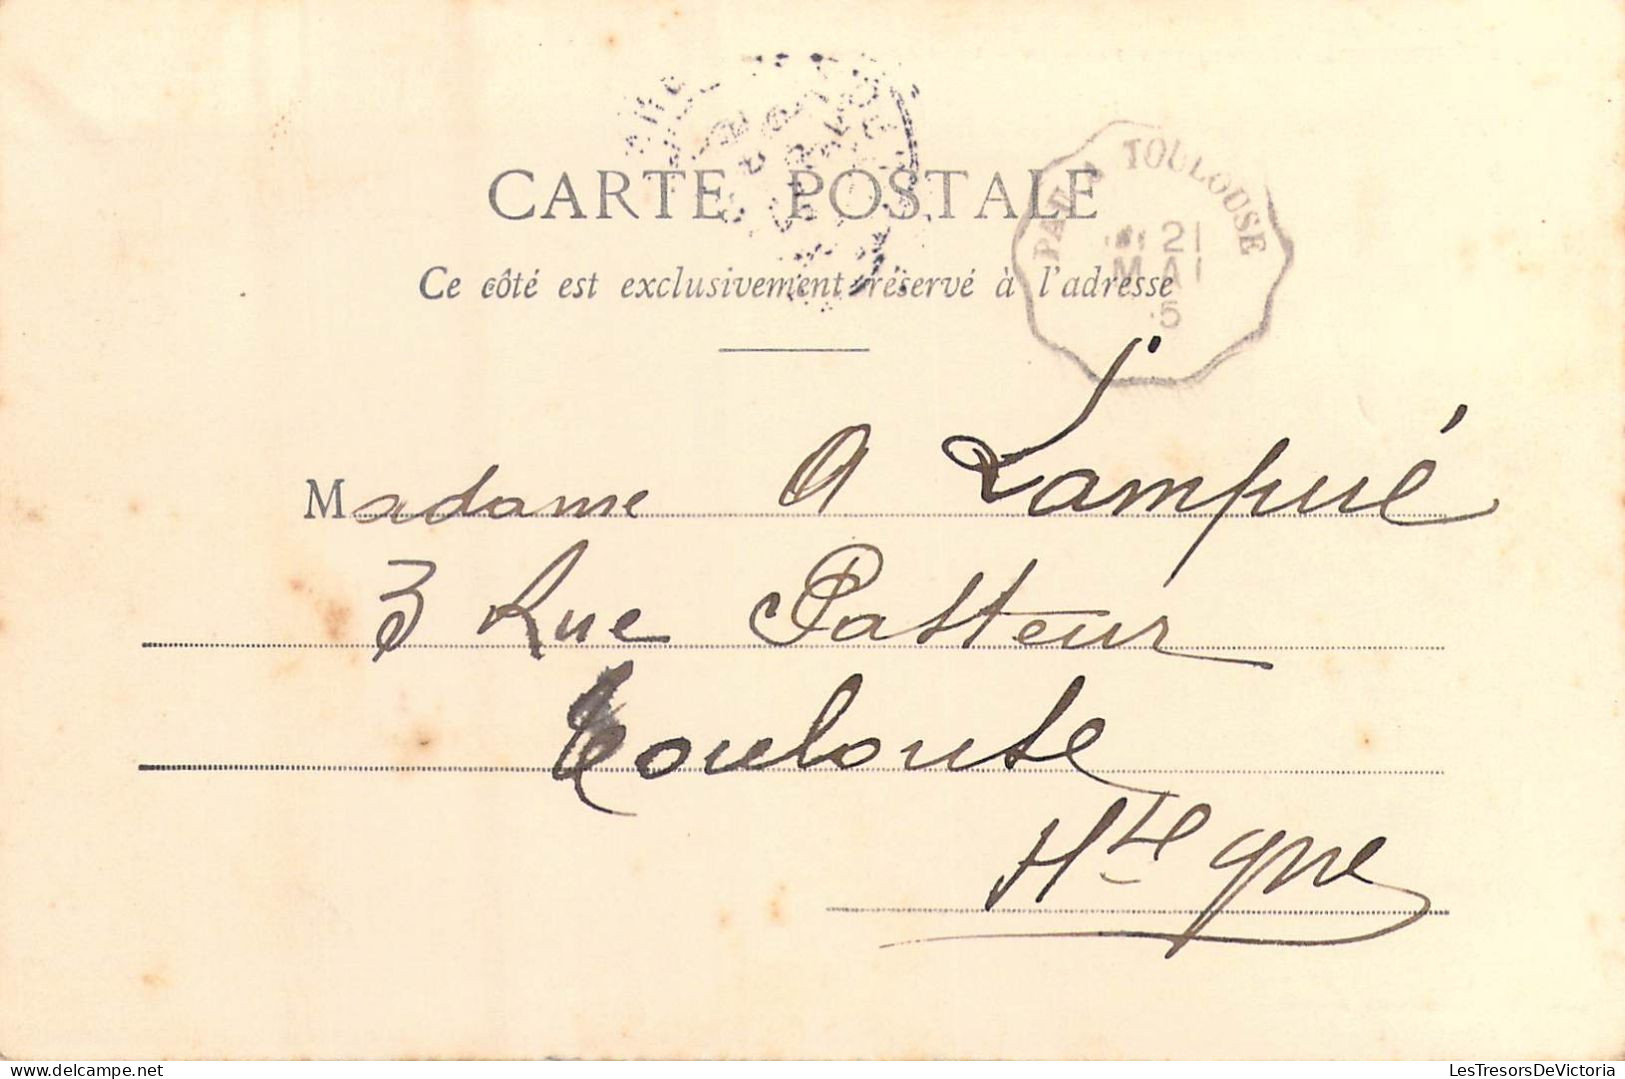 CARTE POSTALE
Ce côté est exclusivement réservé à l'adresse
PAU À TOULOUSE
21
MAI
5
Madame A Lampué
3 Rue Pasteur
Toulouse
Hte Gne
LesTresorsDeVictoria